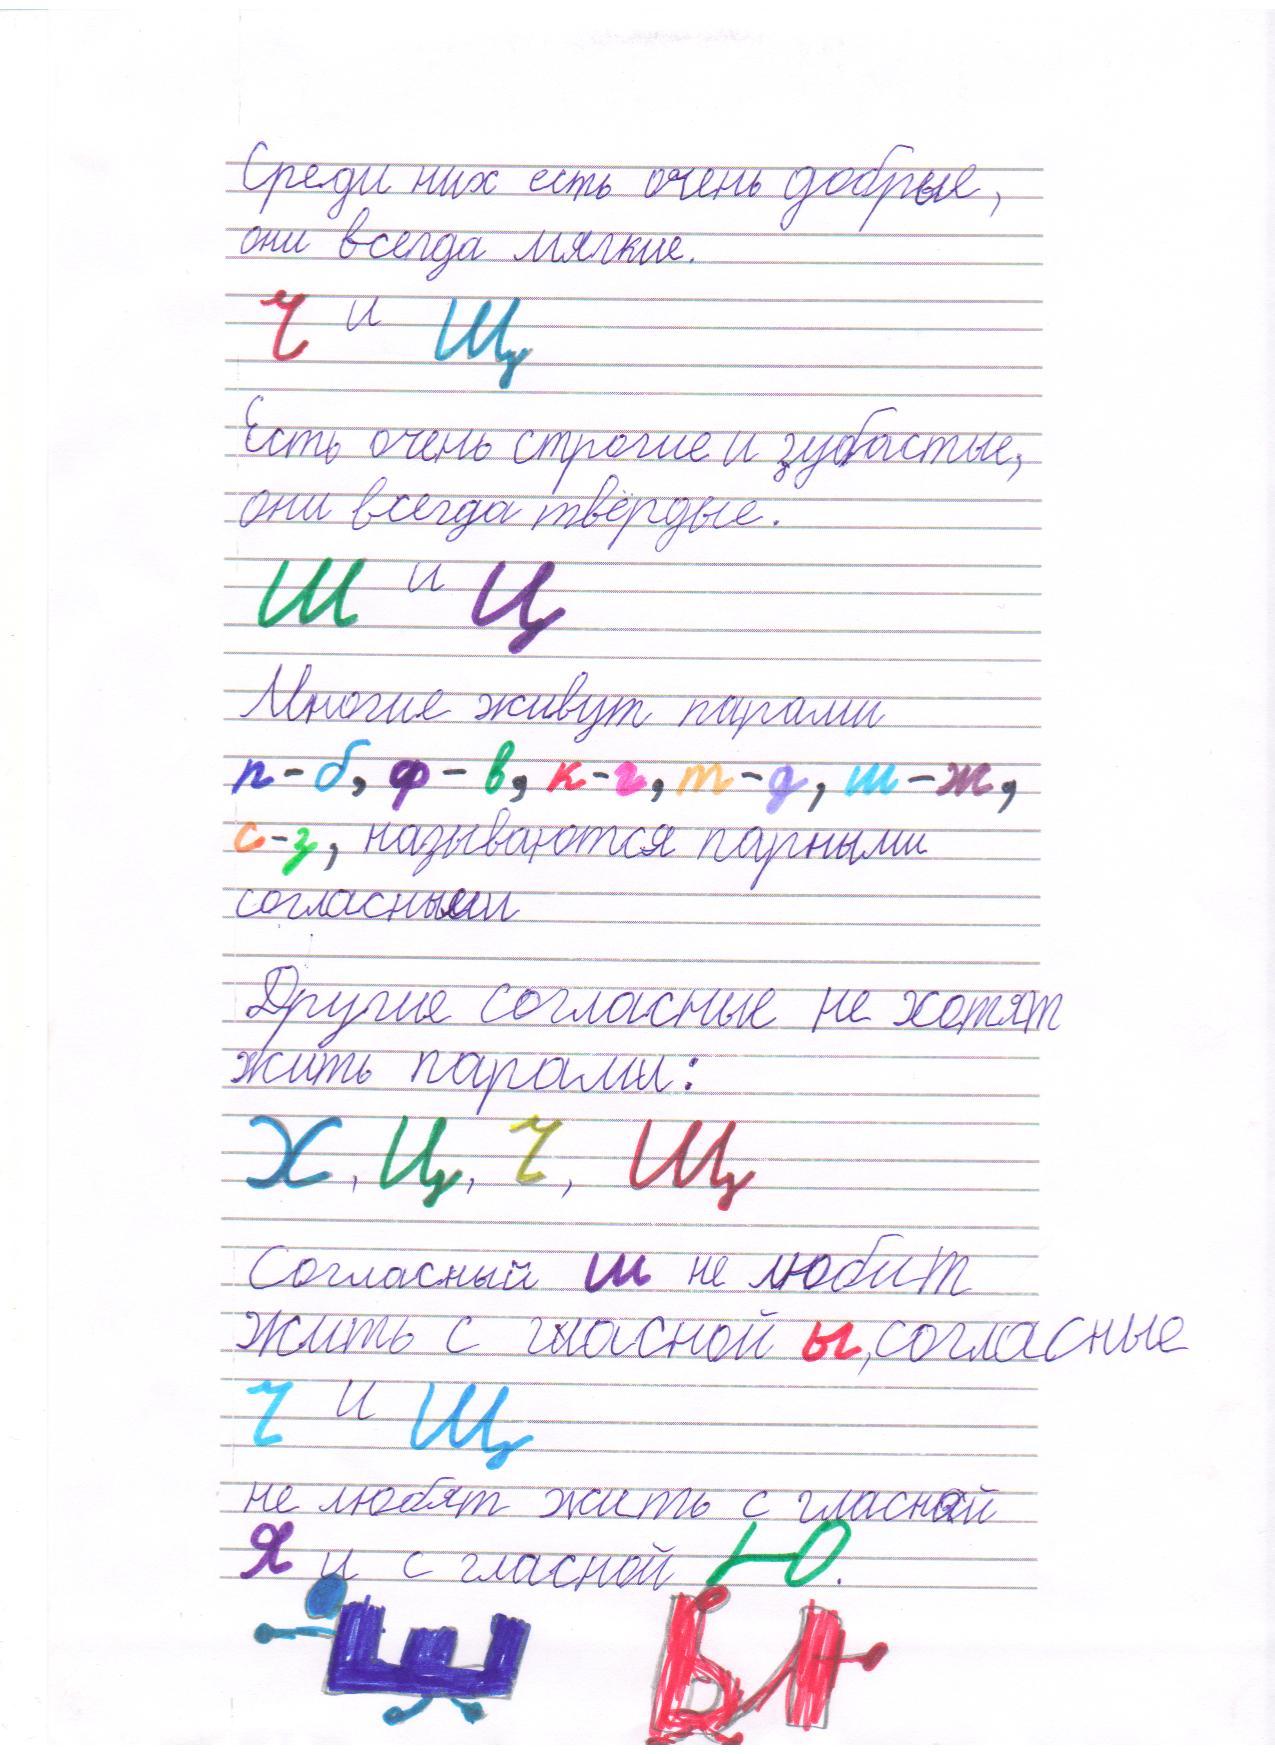 Среди них есть очень добрые,
они всегда мягкие.
Ч и Щ
Есть очень строгие и зубастые,
они всегда твёрдые.
Ш и Ц
Многие живут парами
п-б, ф-в, к-г, т-д, ш-ж,
с-з, называются парными
согласными
Другие согласные не хотят
жить парами:
Х, Ц, Ч, Щ
Согласный ш не любит
жить с гласной ы, согласные
Ч и Щ
не любят жить с гласной
Я и с гласной Ю.
Ш Ы